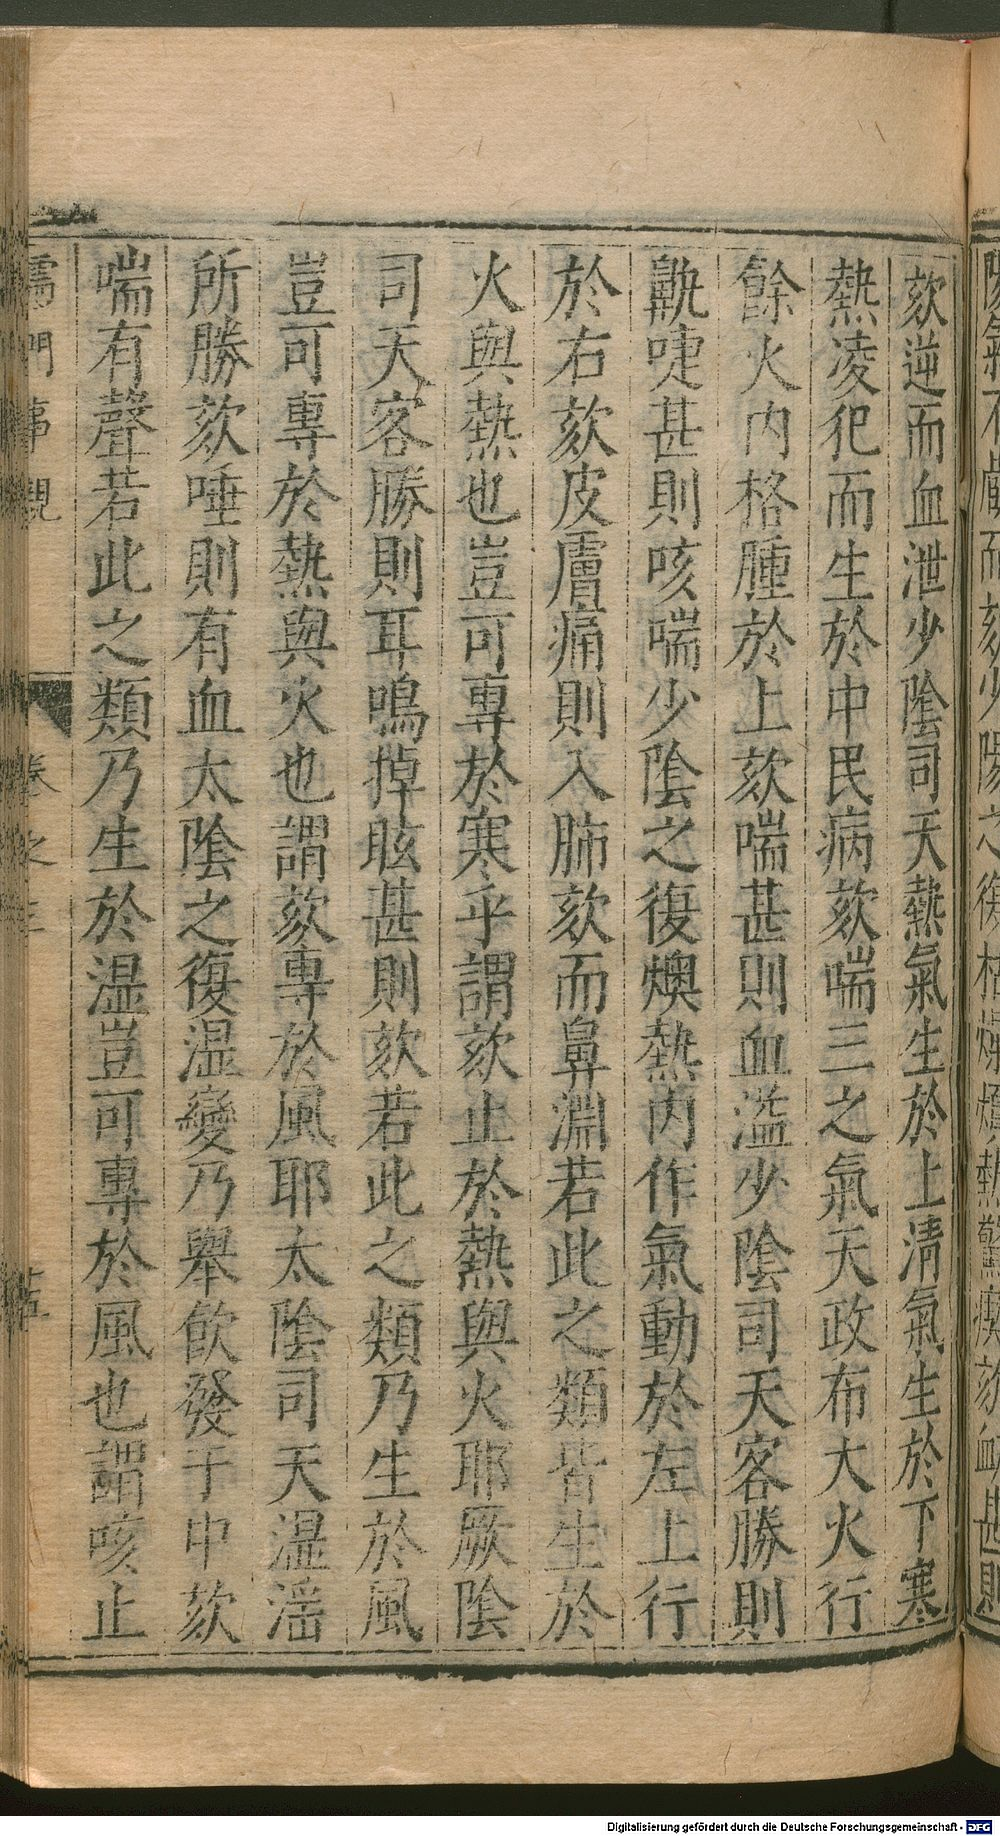 欬逆而血泄少陰司天熱氣生於上清氣生於下寒
熱凌犯而生於中民病欬喘三之氣天政布大火行
餘火内格腫於上欬喘甚則血溢少陰司天客勝則
鼽嚏甚則咳喘少陰之復燠熱内作氣動於左上行
於右欬皮膚痛則入肺欬而鼻淵若此之類皆生於
火與熱也豈可專於寒乎謂欬止於熱與火耶厥陰
司天客勝則耳鳴掉眩甚則欬若此之類乃生於風
豈可專於熱與火也謂欬專於風耶太陰司天濕淫
所勝欬唾則有血太陰之復濕變乃舉飲發于中欬
喘有聲若此之類乃生於濕豈可專於風也謂咳止
儒門事親 卷之三
Digitalisierung gefördert durch die Deutsche Forschungsgemeinschaft - DFG